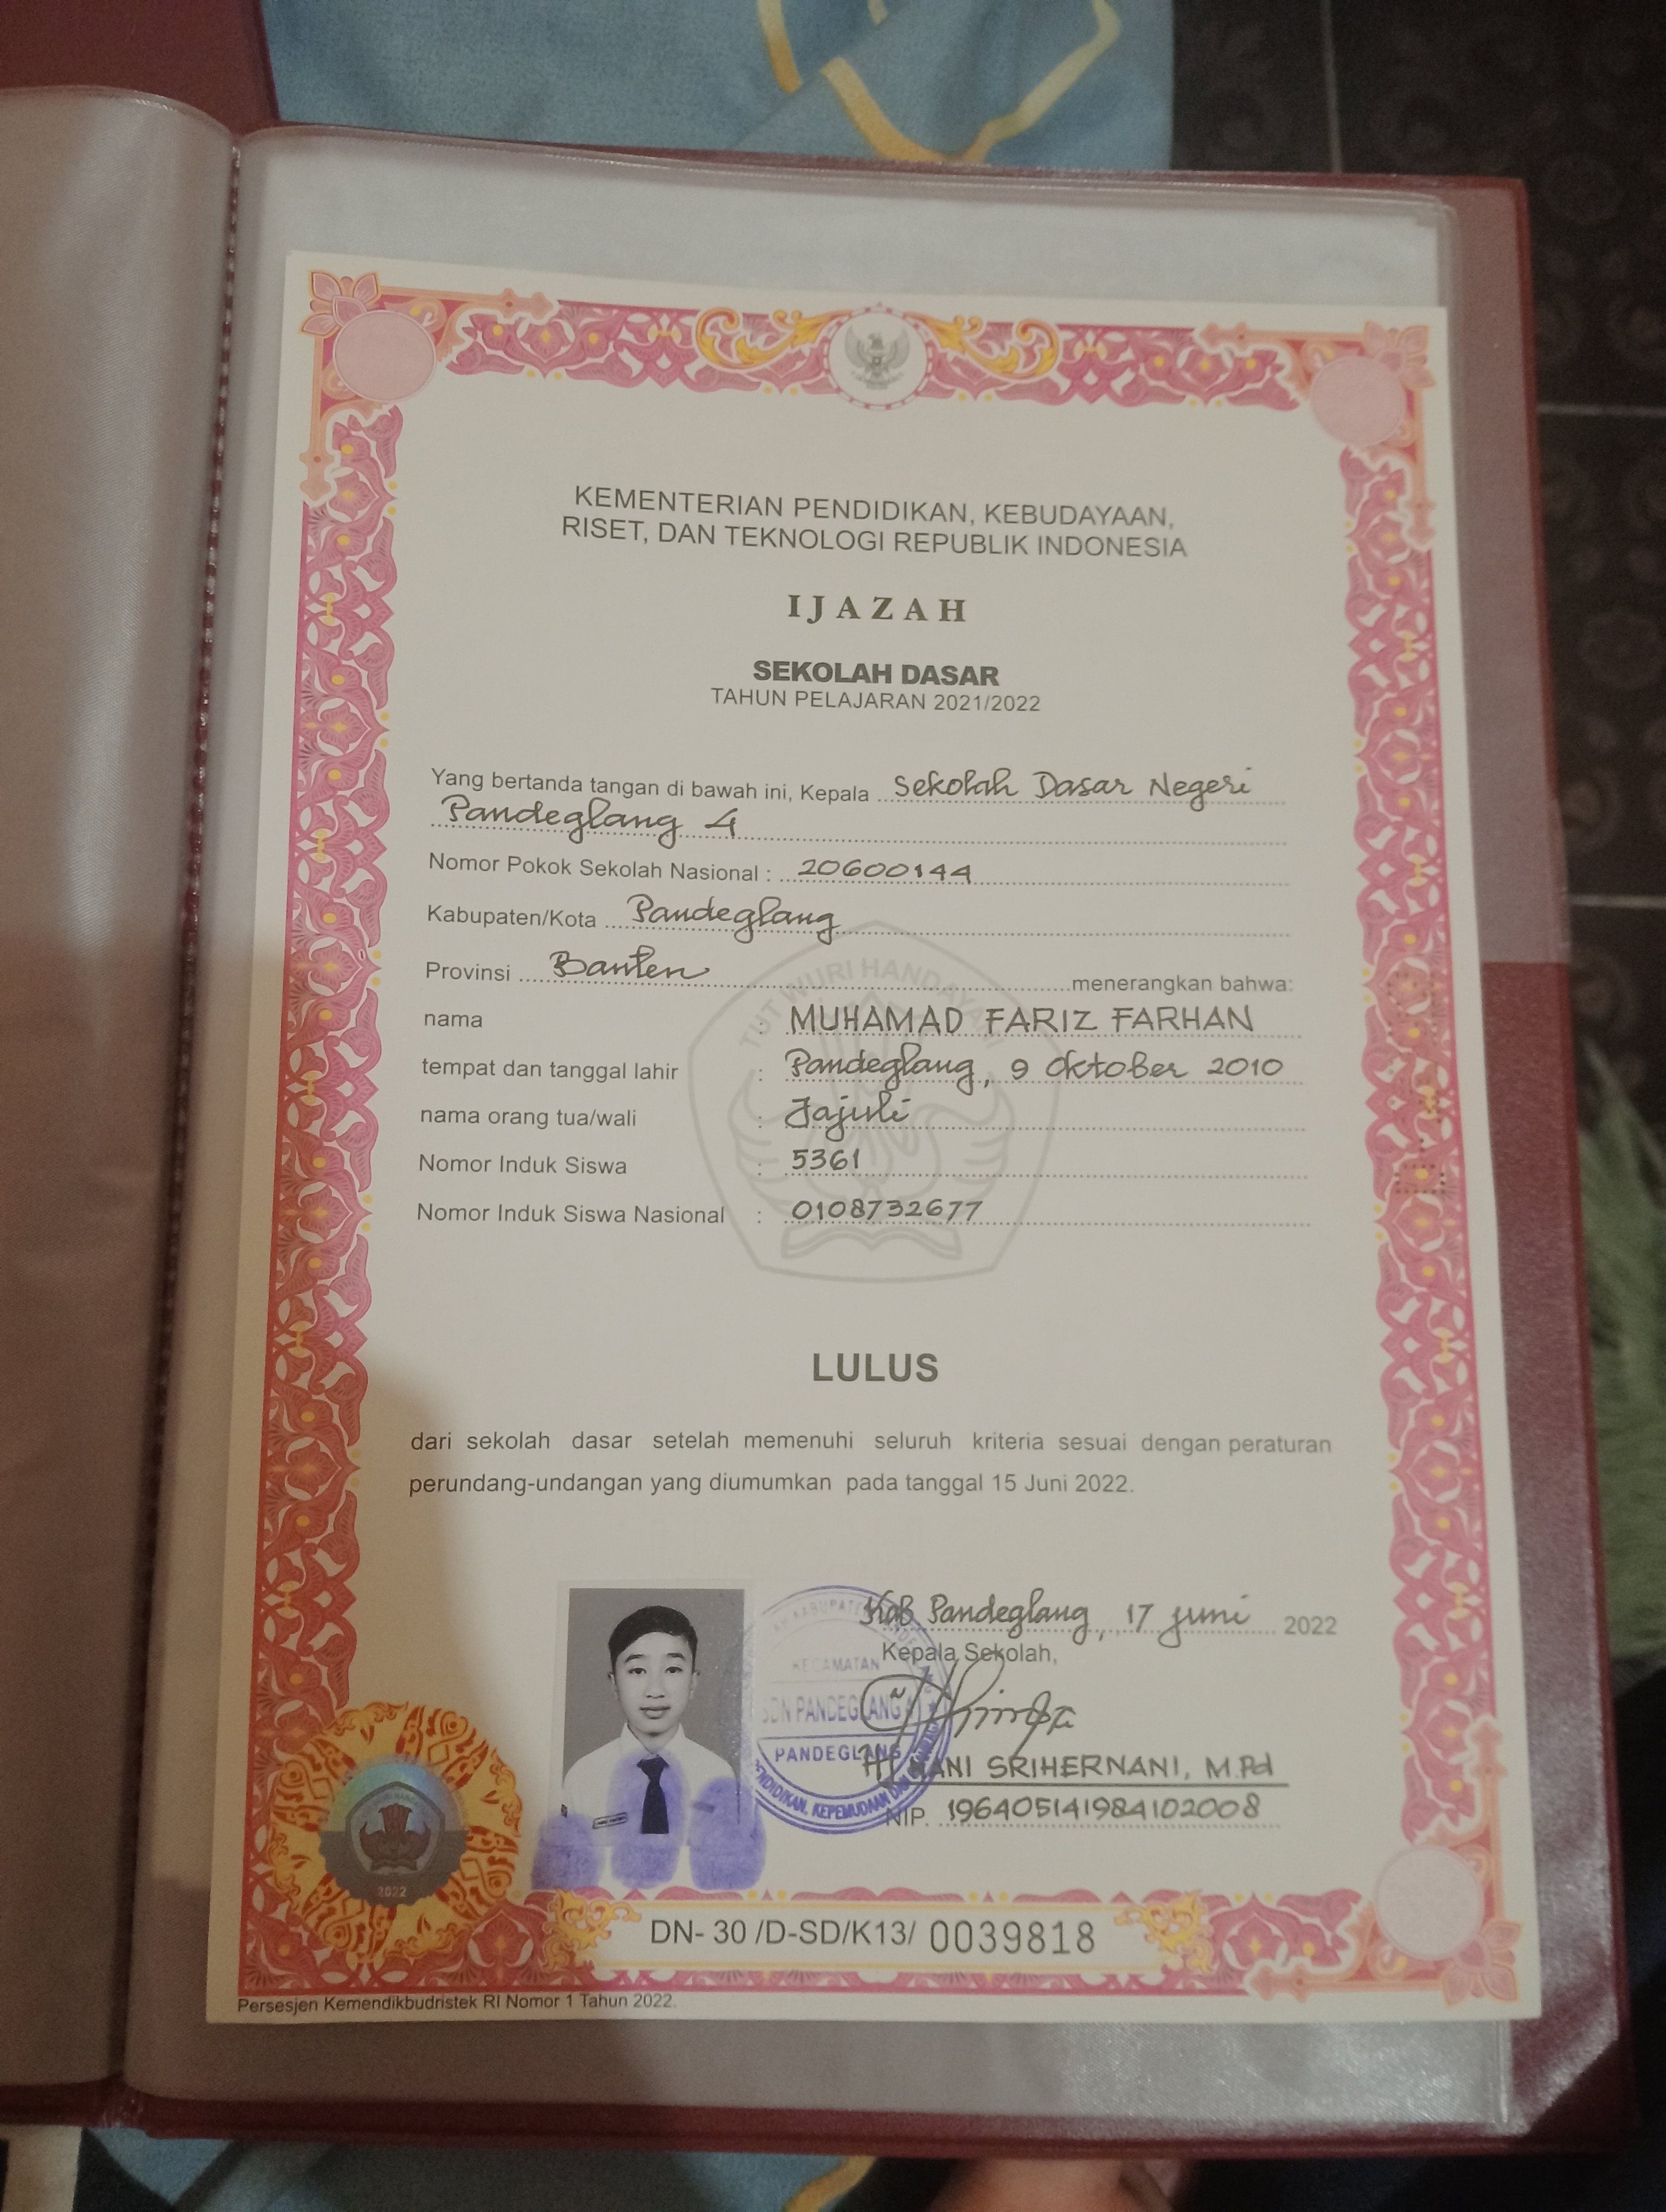 KEMENTERIAN PENDIDIKAN, KEBUDAYAAN,
RISET, DAN TEKNOLOGI REPUBLIK INDONESIA
IJAZAH
SEKOLAH DASAR
TAHUN PELAJARAN 2021/2022
Yang bertanda tangan di bawah ini, Kepala Sekolah Dasar Negeri
Pandeglang 4
Nomor Pokok Sekolah Nasional : 20600144
Kabupaten/Kota Pandeglang
Provinsi Banten menerangkan bahwa:
TUT WURI HANDAYANI
nama : MUHAMAD FARIZ FARHAN
tempat dan tanggal lahir : Pandeglang, 9 Oktober 2010
nama orang tua/wali : Jajuli
Nomor Induk Siswa : 5361
Nomor Induk Siswa Nasional : 0108732677
LULUS
dari sekolah dasar setelah memenuhi seluruh kriteria sesuai dengan peraturan
perundang-undangan yang diumumkan pada tanggal 15 Juni 2022.
Kab Pandeglang, 17 juni 2022
Kepala Sekolah,
KECAMATAN
SDN PANDEGLANG 4
PANDEGLANG
PENDIDIKAN, KEPEMUDAAN DAN
Hj HANI SRIHERNANI, M.Pd
NIP. 196405141984102008
2022
DN- 30 /D-SD/K13/ 0039818
Persesjen Kemendikbudristek RI Nomor 1 Tahun 2022.